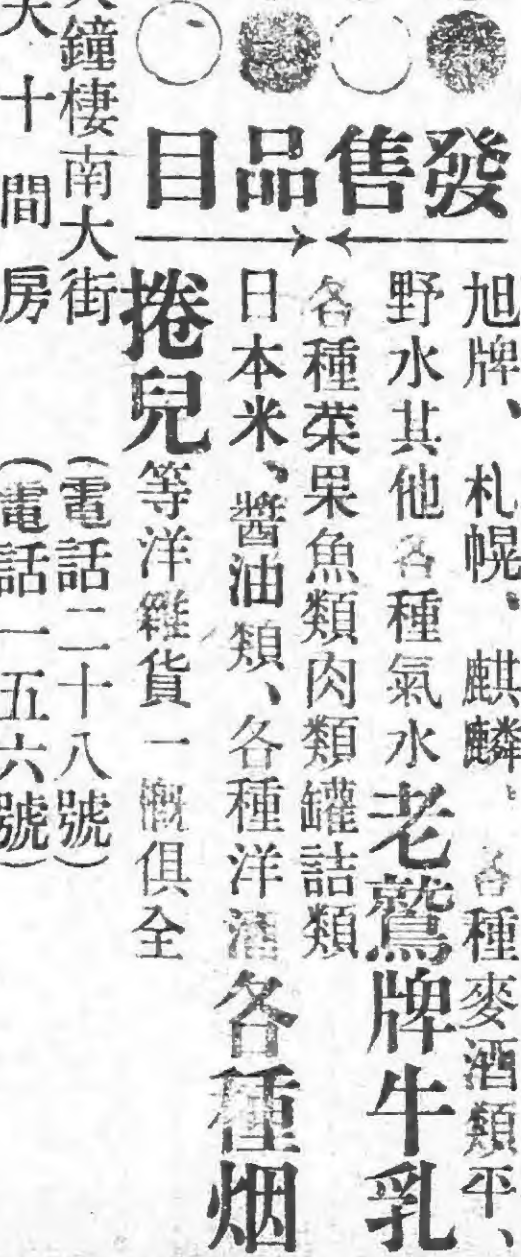 發售品目
旭牌、札幌、麒麟、各種麥酒類平、
野水其他各種氣水老鷲牌牛乳
各種菜果魚類肉類罐詰類
日本米、醬油類、各種洋酒各種烟
捲兒等洋雜貨一概俱全
鐘棲南大街 (電話二十八號)
十間房 (電話一五六號)